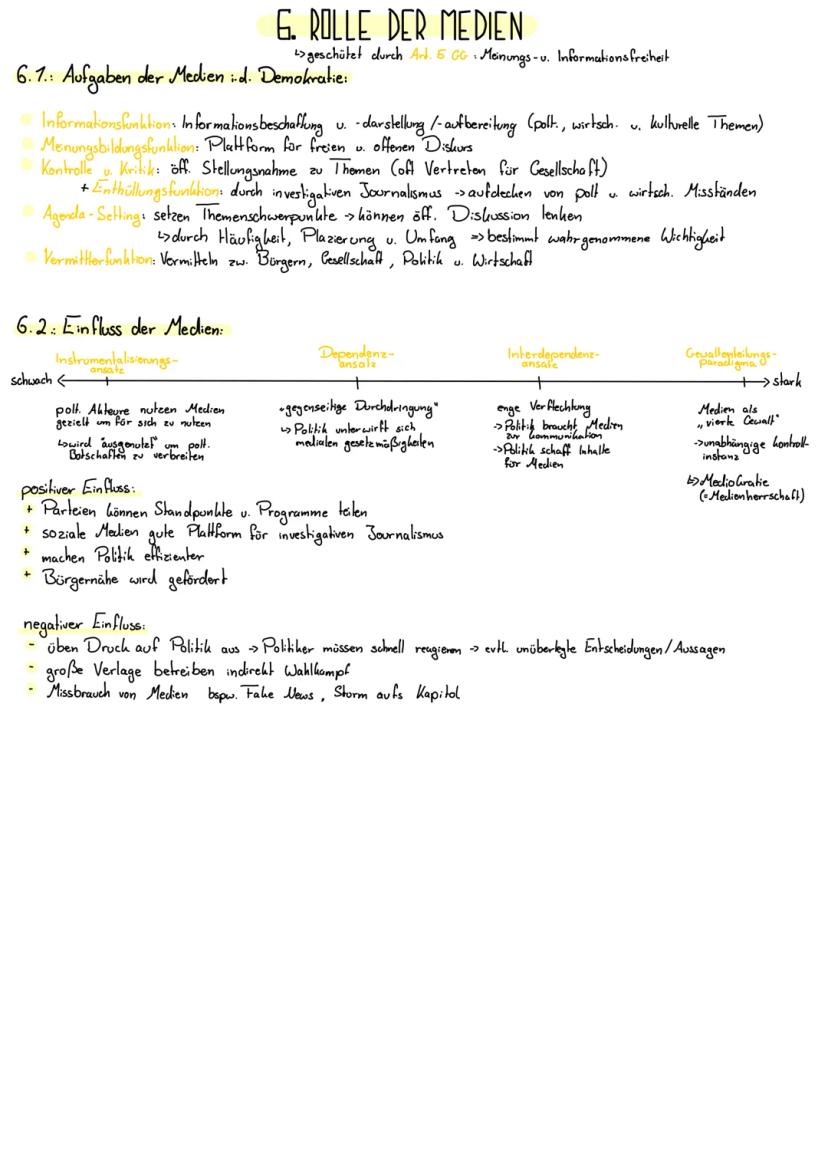 6. ROLLE DER MEDIEN
↳geschützt durch Art. 5 GG: Meinungs- u. Informationsfreiheit
6.1.: Aufgaben der Medien i.d. Demokratie:
Informationsfunktion: Informationsbeschaffung u. -darstellung /-aufbereitung (polt., wirtsch. u. kulturelle Themen)
Menungsbildungsfunktion: Plattform für freien u. offenen Diskurs
Kontrolle u. Kritik: öff. Stellungsnahme zu Themen (oft Vertreten für Gesellschaft)
+ Enthüllungsfunktion: durch investigativen Journalismus → aufdecken von polt u. wirtsch. Misständen
Agenda-Setting: setzen Themenschwerpunkte → können öff. Diskussion lenken
↳durch Häufigkeit, Plazierung u. Umfang => bestimmt wahrgenommene Wichtigkeit
Vermittlerfunktion: Vermitteln zw. Bürgern, Gesellschaft, Politik u. Wirtschaft
6.2.: Einfluss der Medien:
Instrumentalisierungs-
ansatz
Dependenz-
ansatz
Interdependenz-
ansatz
Gewaltenteilungs-
paradigma
schwach
stark
polt. Akteure nutzen Medien
gezielt um für sich zu nutzen
↳wird "ausgenutzt" um polt.
Botschaften zu verbreiten
"gegenseitige Durchdringung"
↳ Politik unterwirft sich
medialen gesetzmäßigkeiten
enge Verflechtung
→ Politik braucht Medien
zur Kommunikation
→ Politik schaff Inhalte
für Medien
Medien als
„vierte Gewalt"
→unabhängige kontroll-
instanz
↳ Mediokratie
(= Medienherrschaft)
positiver Einfluss:
+ Parteien können Standpunkte u. Programme teilen
+ soziale Medien gute Plattform für investigativen Journalismus
+ machen Politik effizienter
+ Bürgernähe wird gefördert
negativer Einfluss:
- üben Druck auf Politik aus → Politiker müssen schnell reagieren → evtl. unüberlegte Entscheidungen/Aussagen
- große Verlage betreiben indirekt Wahlkampf
- Missbrauch von Medien bspw. Fake News, Storm aufs Kapitol